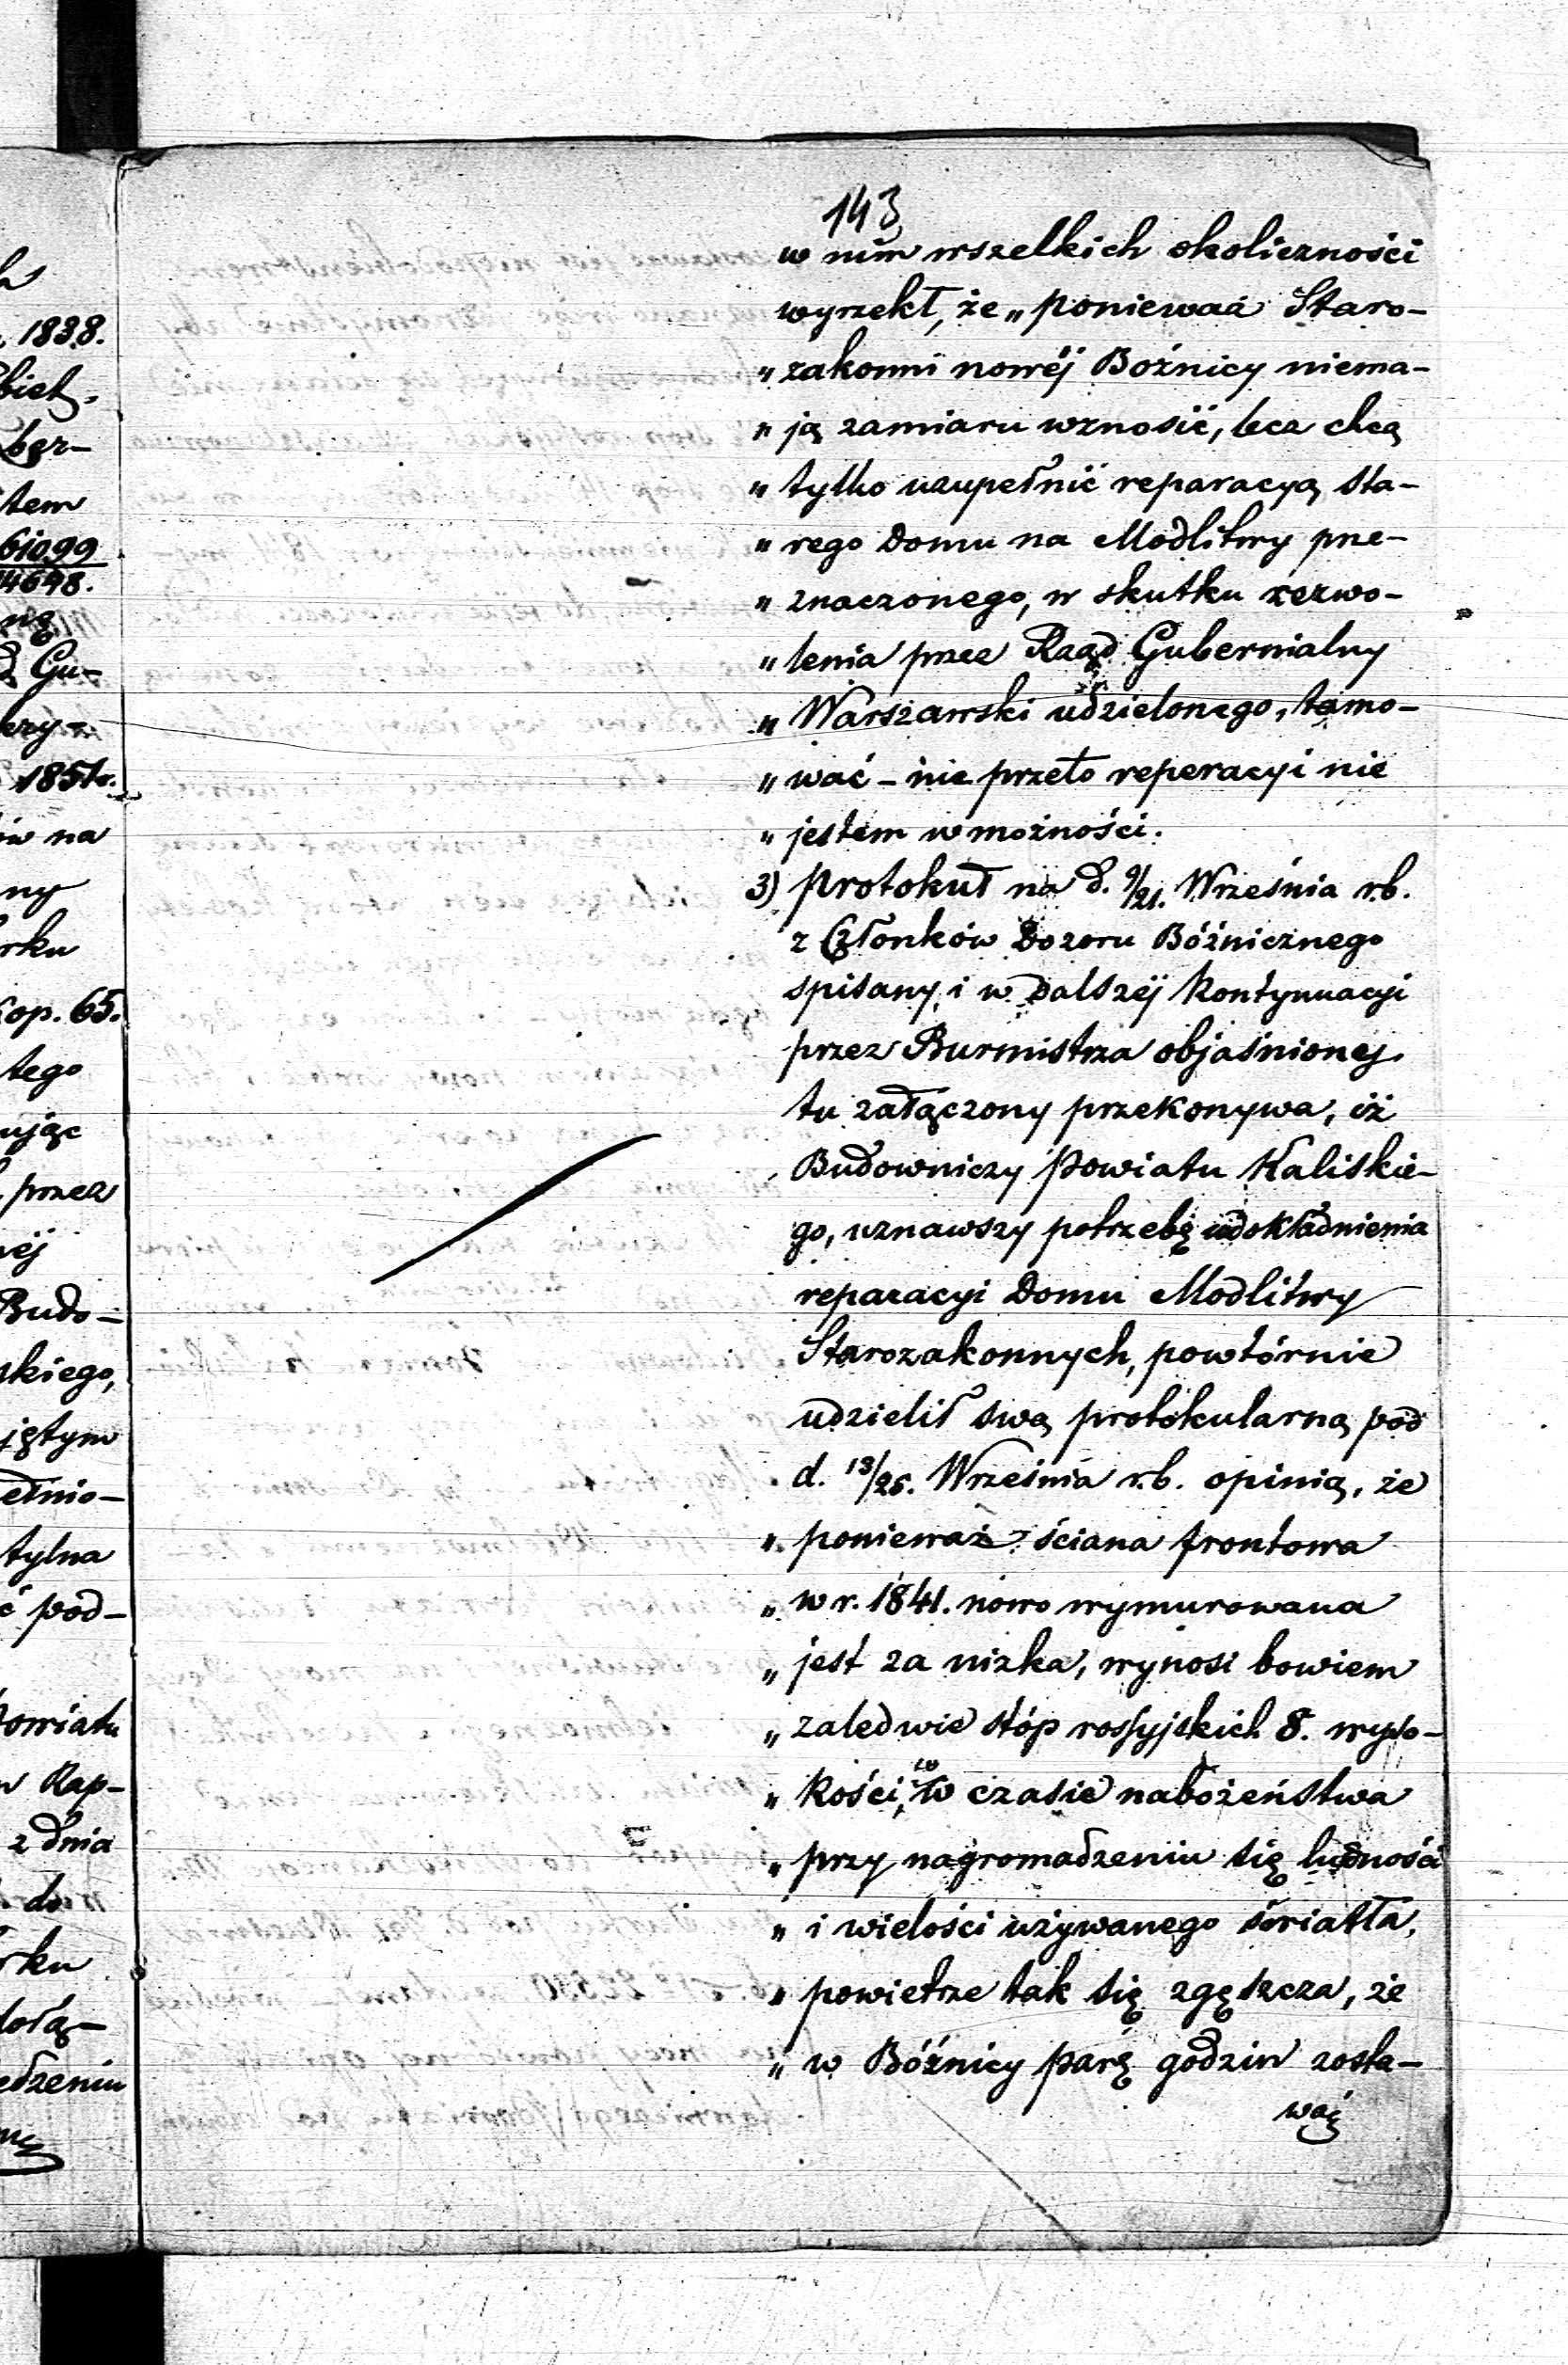 143
w nim wszelkich okoliczności
wyrzekł, że „ponieważ Staro-
„zakonni nowéj Bożnicy niema-
„ją zamiaru wznosić, lecz chcą
„tylko uzupełnić reparacyą sta-
„rego Domu na Modlitwy prze-
„znaczonego, w skutku zezwo-
„lenia przez Rząd Gubernialny
„Warszawski udzielonego, tamo-
„wać – nie przeto reperacyi nie
„jestem w możności.
3) protokuł na d. 9/21. Września r.b.
z Członków Dozoru Bóźnicznego
spisany, i w dalszéj kontynuacyi
przez Burmistrza objaśnionej
tu załączony przekonywa, iż
Budowniczy Powiatu Kaliskie-
go, uznawszy potrzebę udokładnienia
reparacyi Domu Modlitwy
Starozakonnych, powtórnie
udzielił swą protokularną pod
d. 13/25. Września r.b. opinią, że
„ponieważ ściana frontowa
„w r. 1841. nowo wymurowana
„jest za nizka, wynosi bowiem
„zaledwie stóp rossyjskich 8. wyso-
„kości, w czasie nabożeństwa
„przy nagromadzeniu się ludności
„i wielości używanego światła,
„powietrze tak się zgęszcza, że
„w Bóźnicy parę godzin zosta-
wać
1838.
61099
14648.
Gu-
1851r.
na
kop. 65.
tego
przez
Budo-
skiego,
tylna
pod-
Powiatu
Rap-
z dnia
do